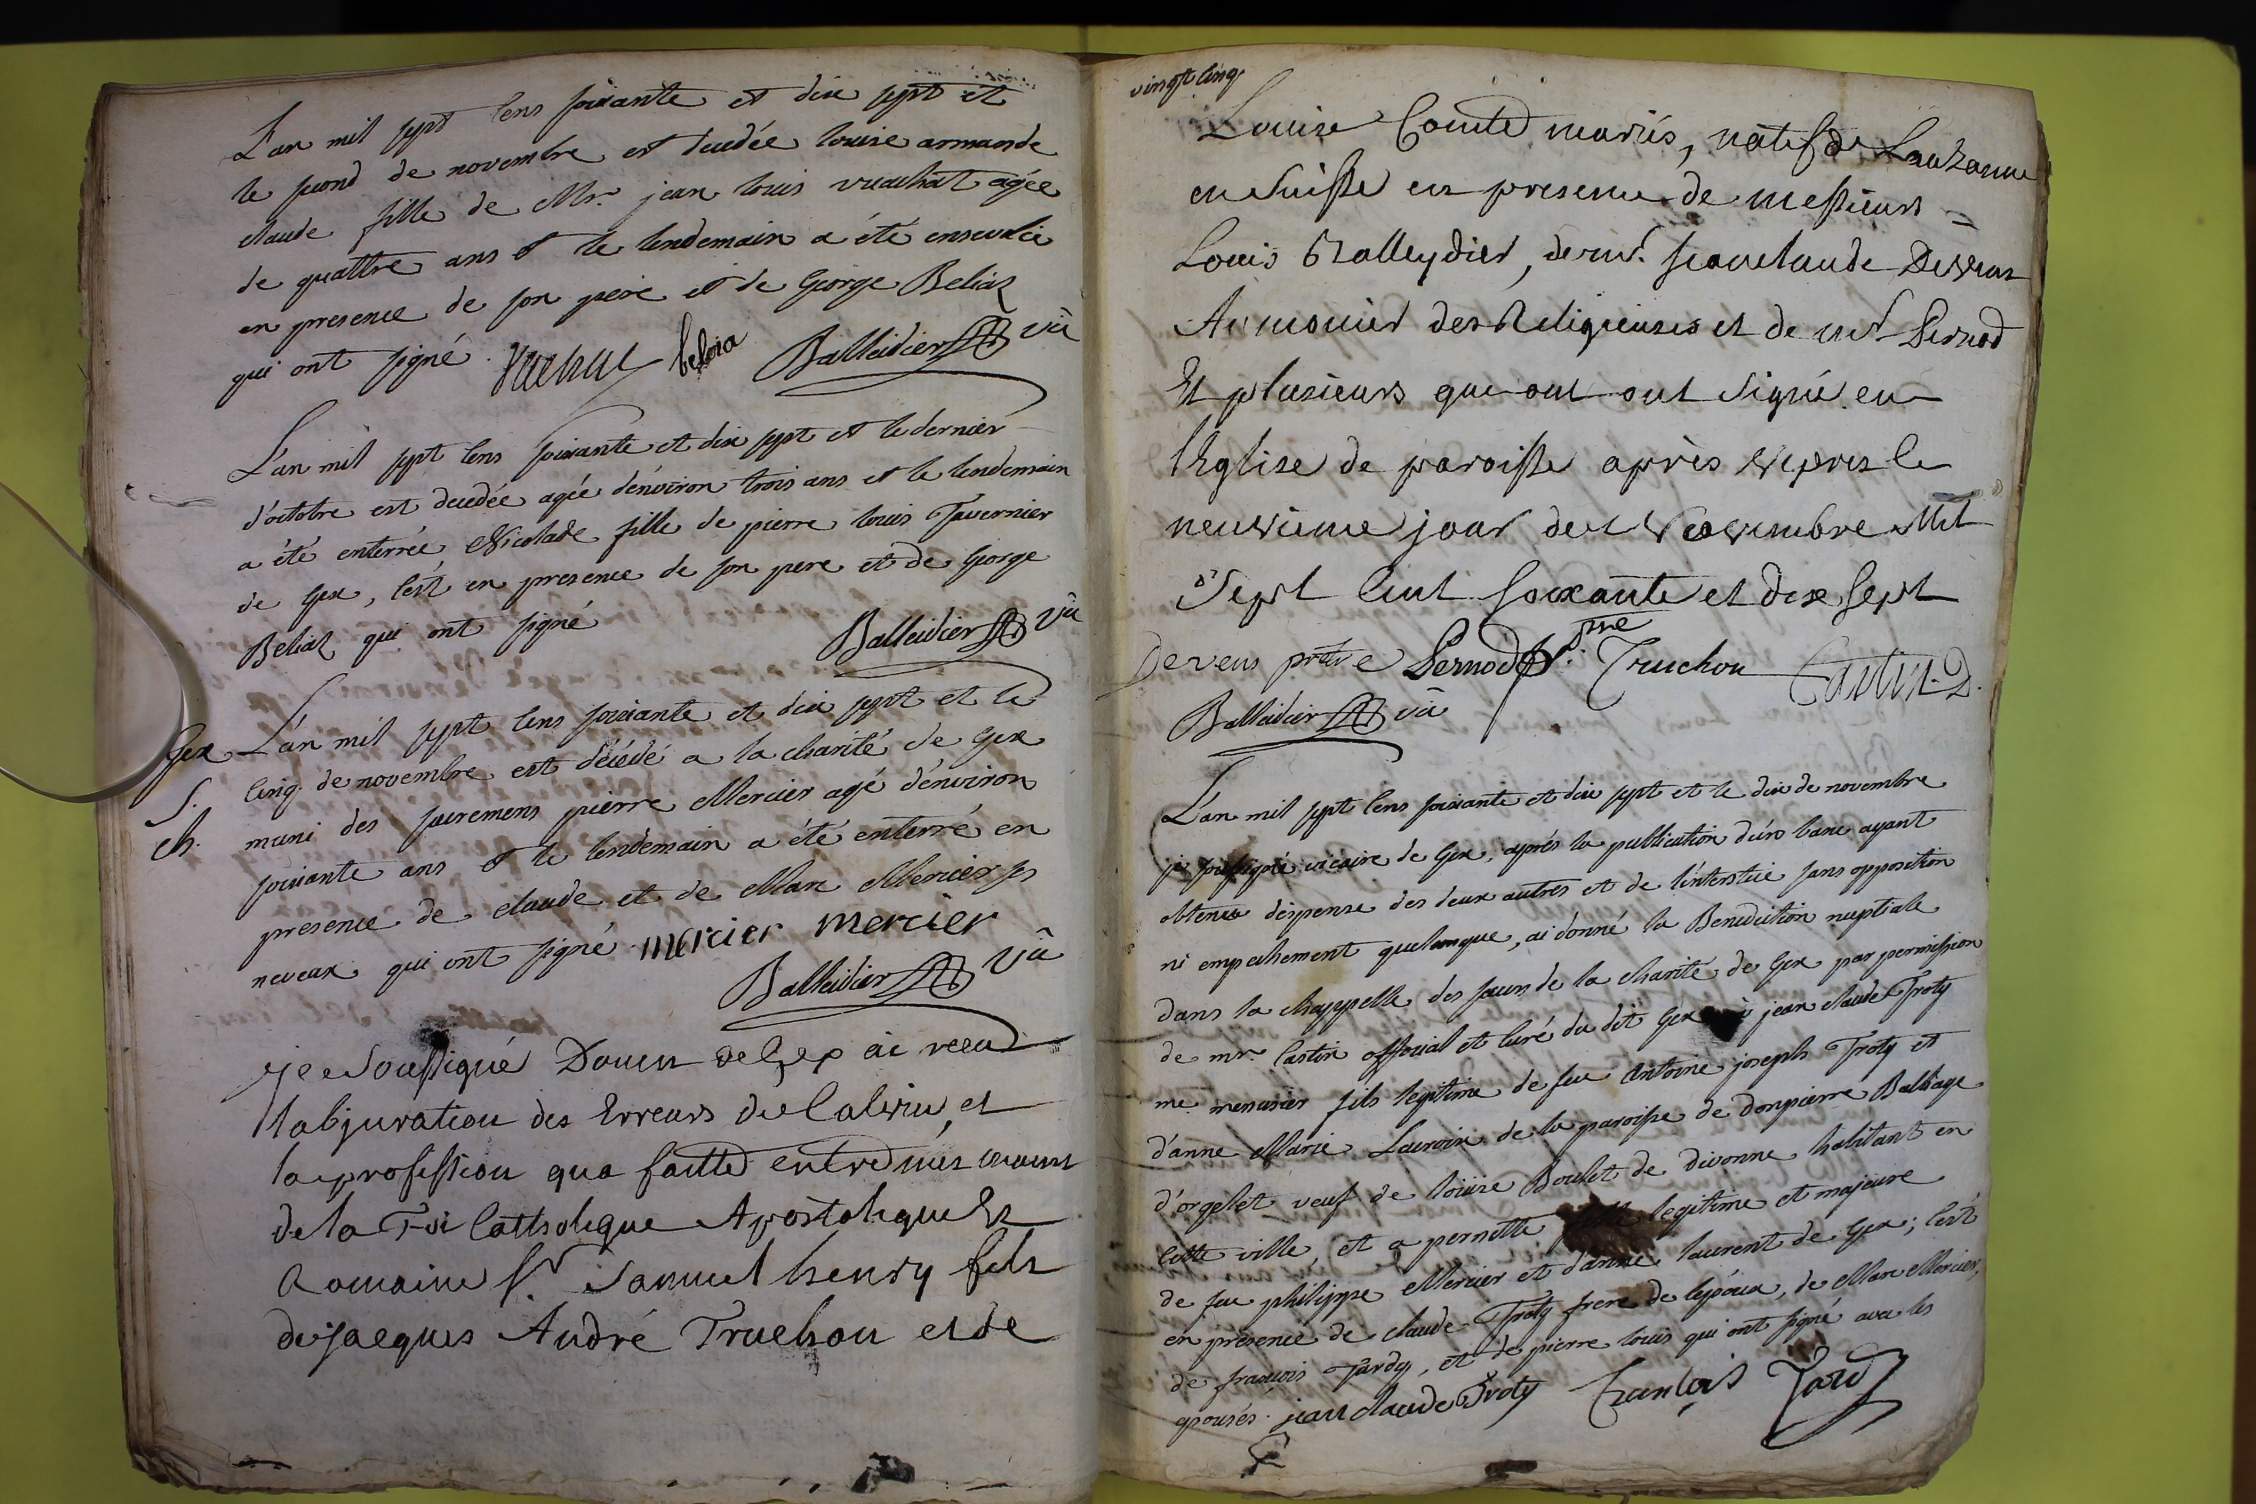 L'an mil sept cens soixante et dix sept et
le second de novembre est decedée louise armande
claude fille de Mr. jean louis vuachat agée
de quattre ans et le lendemain a été ensevelie
en presence de son pere et de George Beliaz
qui ont signé. Vuachat beloia Balleidier vic
L'an mil sept cens soixante et dix sept et le dernier
d'octobre est decedée agée d'environ trois ans et le lendemain
a été enterrée Nicolade fille de pierre louis Tavernier
de Gex, c'est en presence de son pere et de George
Beliaz qui ont signé Balleidier vic
Gex
S.
ch.
L'an mil sept cens soixante et dix sept et le
cinq de novembre est décédé a la charité de Gex
muni des sacremens pierre Mercier agé d'environ
soixante ans et le lendemain a été enterré en
presence de claude et de Marc Mercier ses
neveux qui ont signé. mercier mercier
Balleidier vic
je Soussigné Doien de Gex ai receu
l'abjuration des Erreurs de Calvin, et
la profession qu'a faitte entre mes mains
de la Foi Catholique Apostolique Et
Romaine Sr. Samuel henry fils
de jacques André Truchon et de
vingt cinq.
Louise Comte mariés, natif de Lauzanne
en Suisse en presence de messieurs
Louis Balleydier, de mr. jean claude Devens
Aumonier des Religieuses et de mr Pernod
Et plusieurs qui ont signé en
l'Eglise de paroisse après vepres le
neuvieme jour de Novembre Mil
Sept Cent Soixante et dix Sept
Devens prêtre Pernod ptre Truchon Castin. D.
Balleidier vic
L'an mil sept cens soixante et dix sept et le dix de novembre
je soussigné vicaire de Gex, aprés la publication d'un banc ayant
obtenu dispense des deux autres et de l'interstice sans opposition
ni empechement quelconque, ai donné la Benediction nuptiale
dans la chappelle des sœurs de la charité de Gex par permission
de mr. Castin official et curé du dit Gex à jean claude Troty
me menusier fils legitime de feu Antoine joseph Troty et
d'anne Marie Lacroix de la paroisse de donpierre Balliage
d'orgelet veuf de loüise Boulet de divonne habitant en
cette ville, et a pernette legitime et majeure
de feu philippe Mercier et d'anne laurent de Gex; c'est
en presence de claude Troty frere de l'époux, de Marc Mercier,
de françois Tardy, et de pierre louis qui ont signé avec les
epousés. jean claude Troty François Tardy